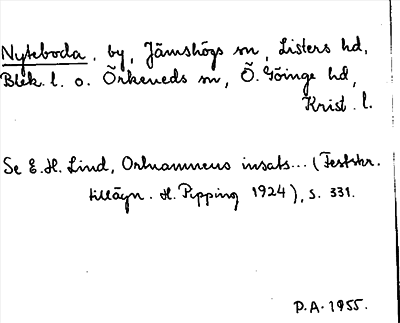 Nyteboda, by, Jämshögs sn, Listers hd,
Blek. l. o. Örkeneds sn, Ö. Göinge hd,
Krist. l.
Se E. H. Lind, Ortnamnens insats... (Festskr.
tillägn. H. Pipping 1924), s. 331.
P.A. 1955.